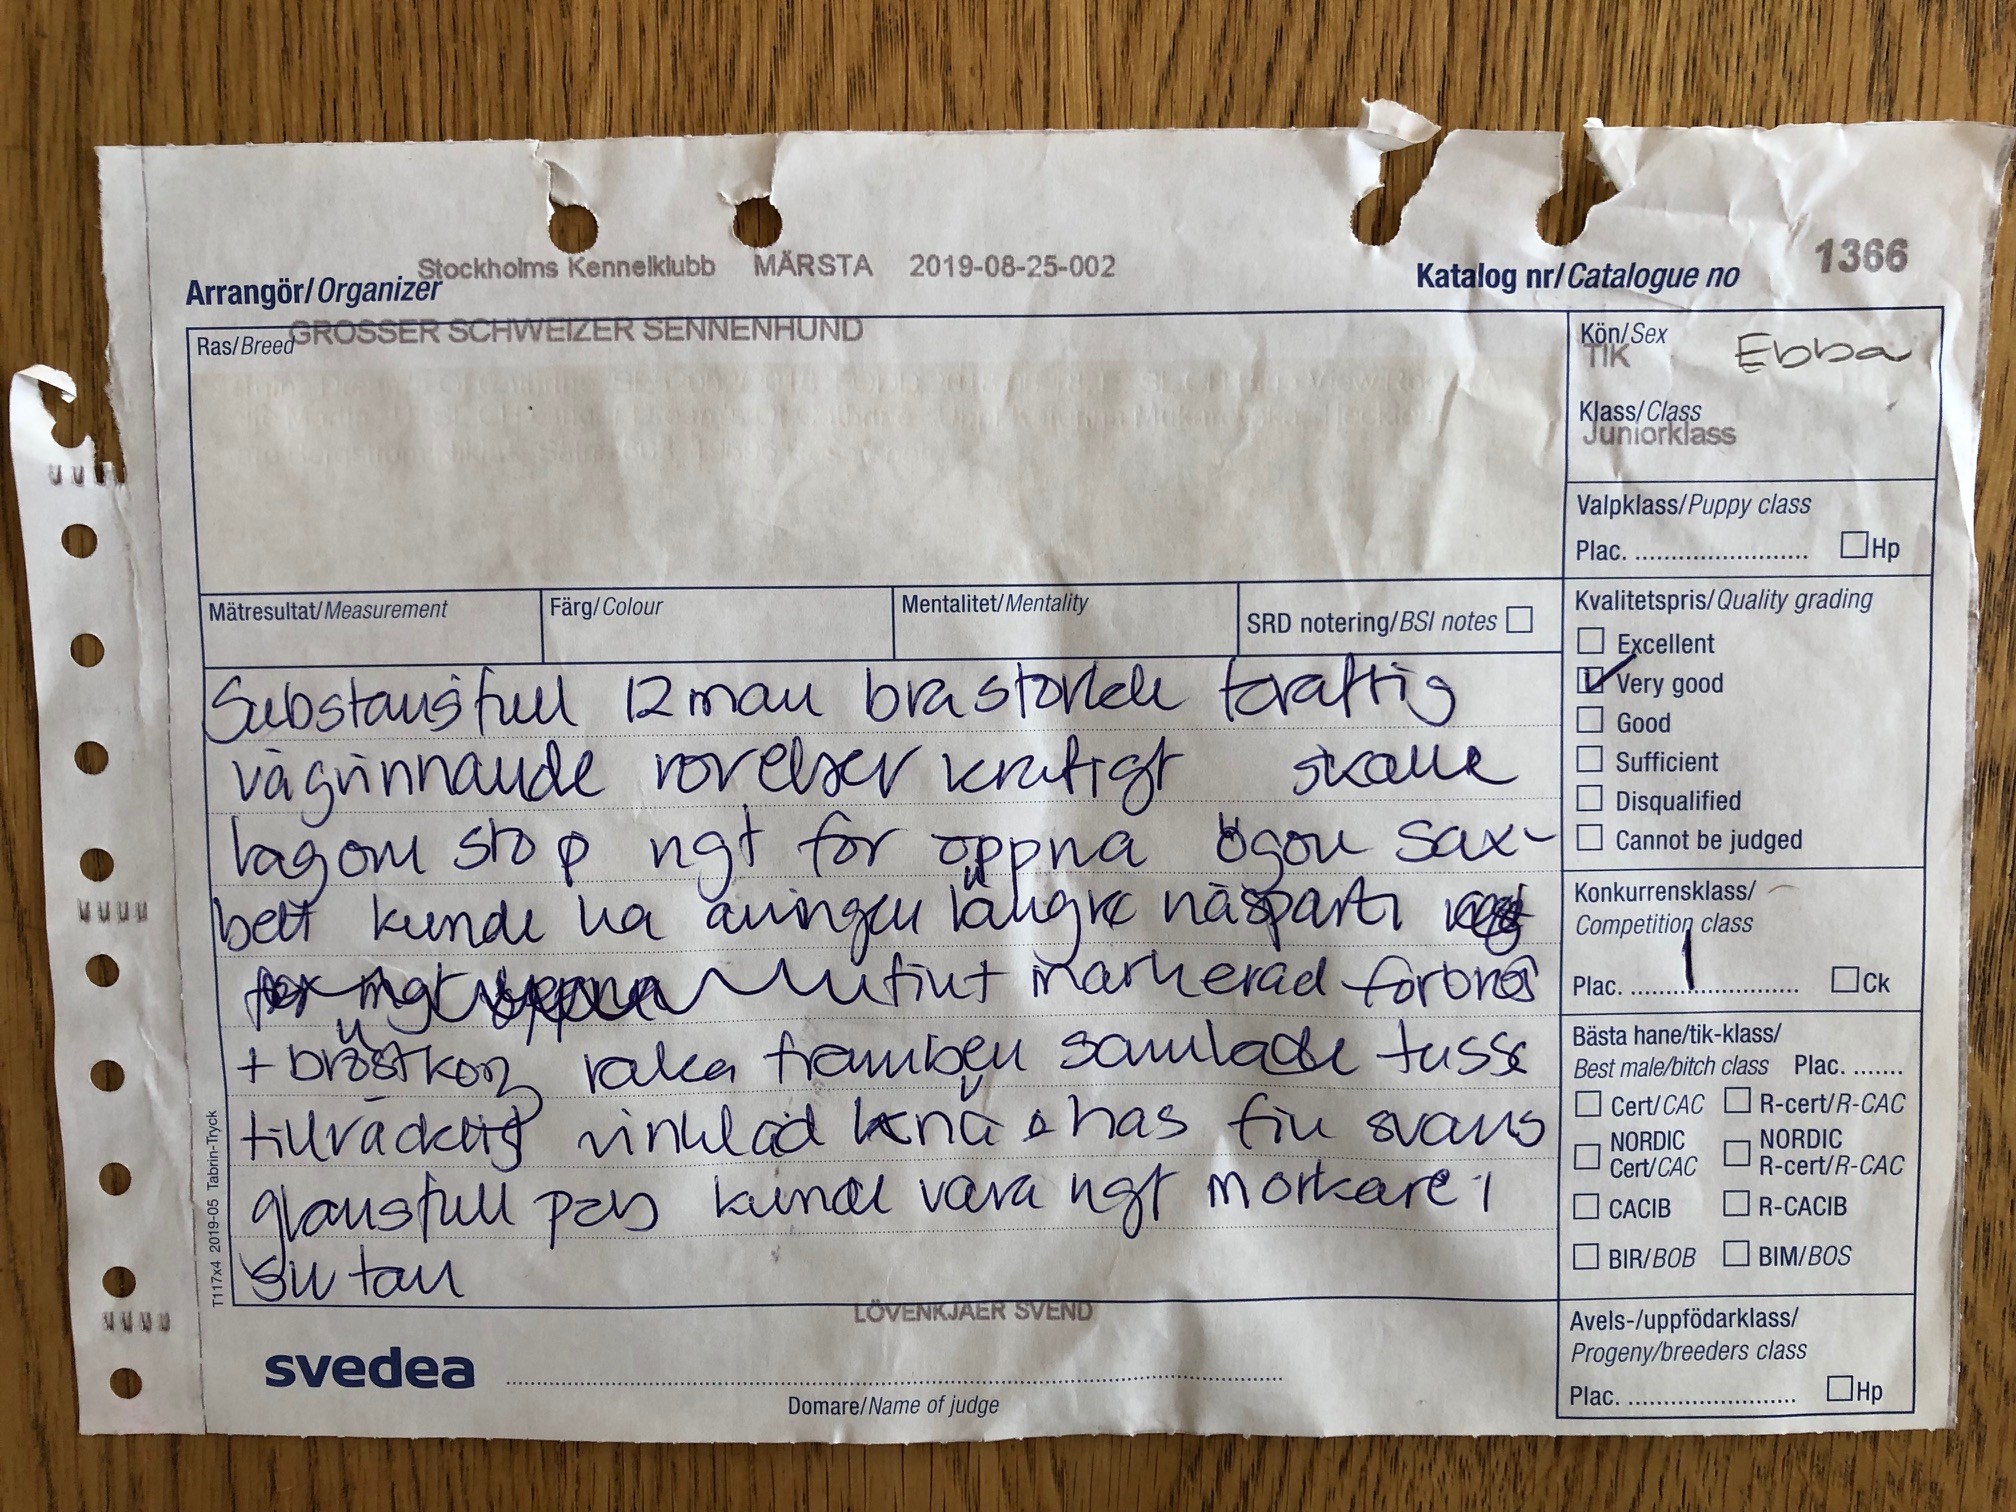 Stockholms Kennelklubb MÄRSTA 2019-08-25-002
Arrangör/Organizer
Katalog nr/Catalogue no 1366
Ras/Breed GROSSER SCHWEIZER SENNENHUND
Kön/Sex
TIK Ebba
Klass/Class
Juniorklass
Valpklass/Puppy class
Plac. ........................ Hp
Mätresultat/Measurement
Färg/Colour
Mentalitet/Mentality
SRD notering/BSI notes
Kvalitetspris/Quality grading
Excellent
Very good
Good
Sufficient
Disqualified
Cannot be judged
Substansfull 12 mån bra storlek kraftig
vägvinnande rörelser kraftigt skalle
lagom stop ngt för öppna ögon sax-
bett kunde ha aningen längre nosparti
markerad förbröst
+ bröstkorg raka framben samlade tassar
tillräckligt vinklad knä & has fin svans
glansfull päls kunde vara ngt mörkare i
sin tan
Konkurrensklass/
Competition class
Plac. ....1.... Ck
Bästa hane/tik-klass/
Best male/bitch class Plac. .......
Cert/CAC R-cert/R-CAC
NORDIC Cert/CAC NORDIC R-cert/R-CAC
CACIB R-CACIB
BIR/BOB BIM/BOS
Avels-/uppfödarklass/
Progeny/breeders class
Plac. ........................ Hp
LÖVENKJAER SVEND
svedea
Domare/Name of judge
T117x4 2019-05 Tabrin-Tryck